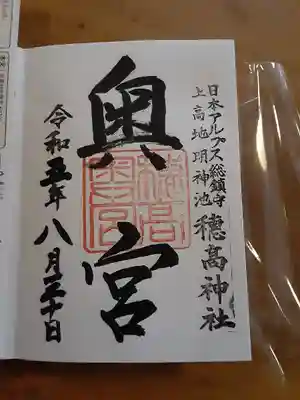 日本アルプス総鎮守
上高地明神池
穂高神社
奥宮
令和五年八月二十日